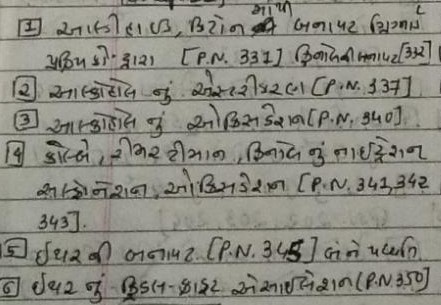 [1] આલ્ડીહાઇડ, કિટોન માંથી બનાવટ ગ્રિગ્નાર્ડ
પ્રક્રિયકો દ્વારા [P.N. 331] ફિનોલની બનાવટ [332]
[2] આલ્કોહોલ નું એસ્ટરીકરણ [P.N. 337]
[3] આલ્કોહોલ નું ઓક્સિડેશન [P.N. 340].
[4] કોલ્બે, રીમર ટીમાન, ફિનોલ નું નાઇટ્રેશન
સલ્ફોનેશન, ઓક્સિડેશન [P.N. 341, 342
343].
[5] ઈથર ની બનાવટ [P.N. 345] બંને પધ્ધતિ
[6] ઈથર નું ફ્રિડલ-ક્રાફ્ટ એસાઇલેશન (P.N 350)